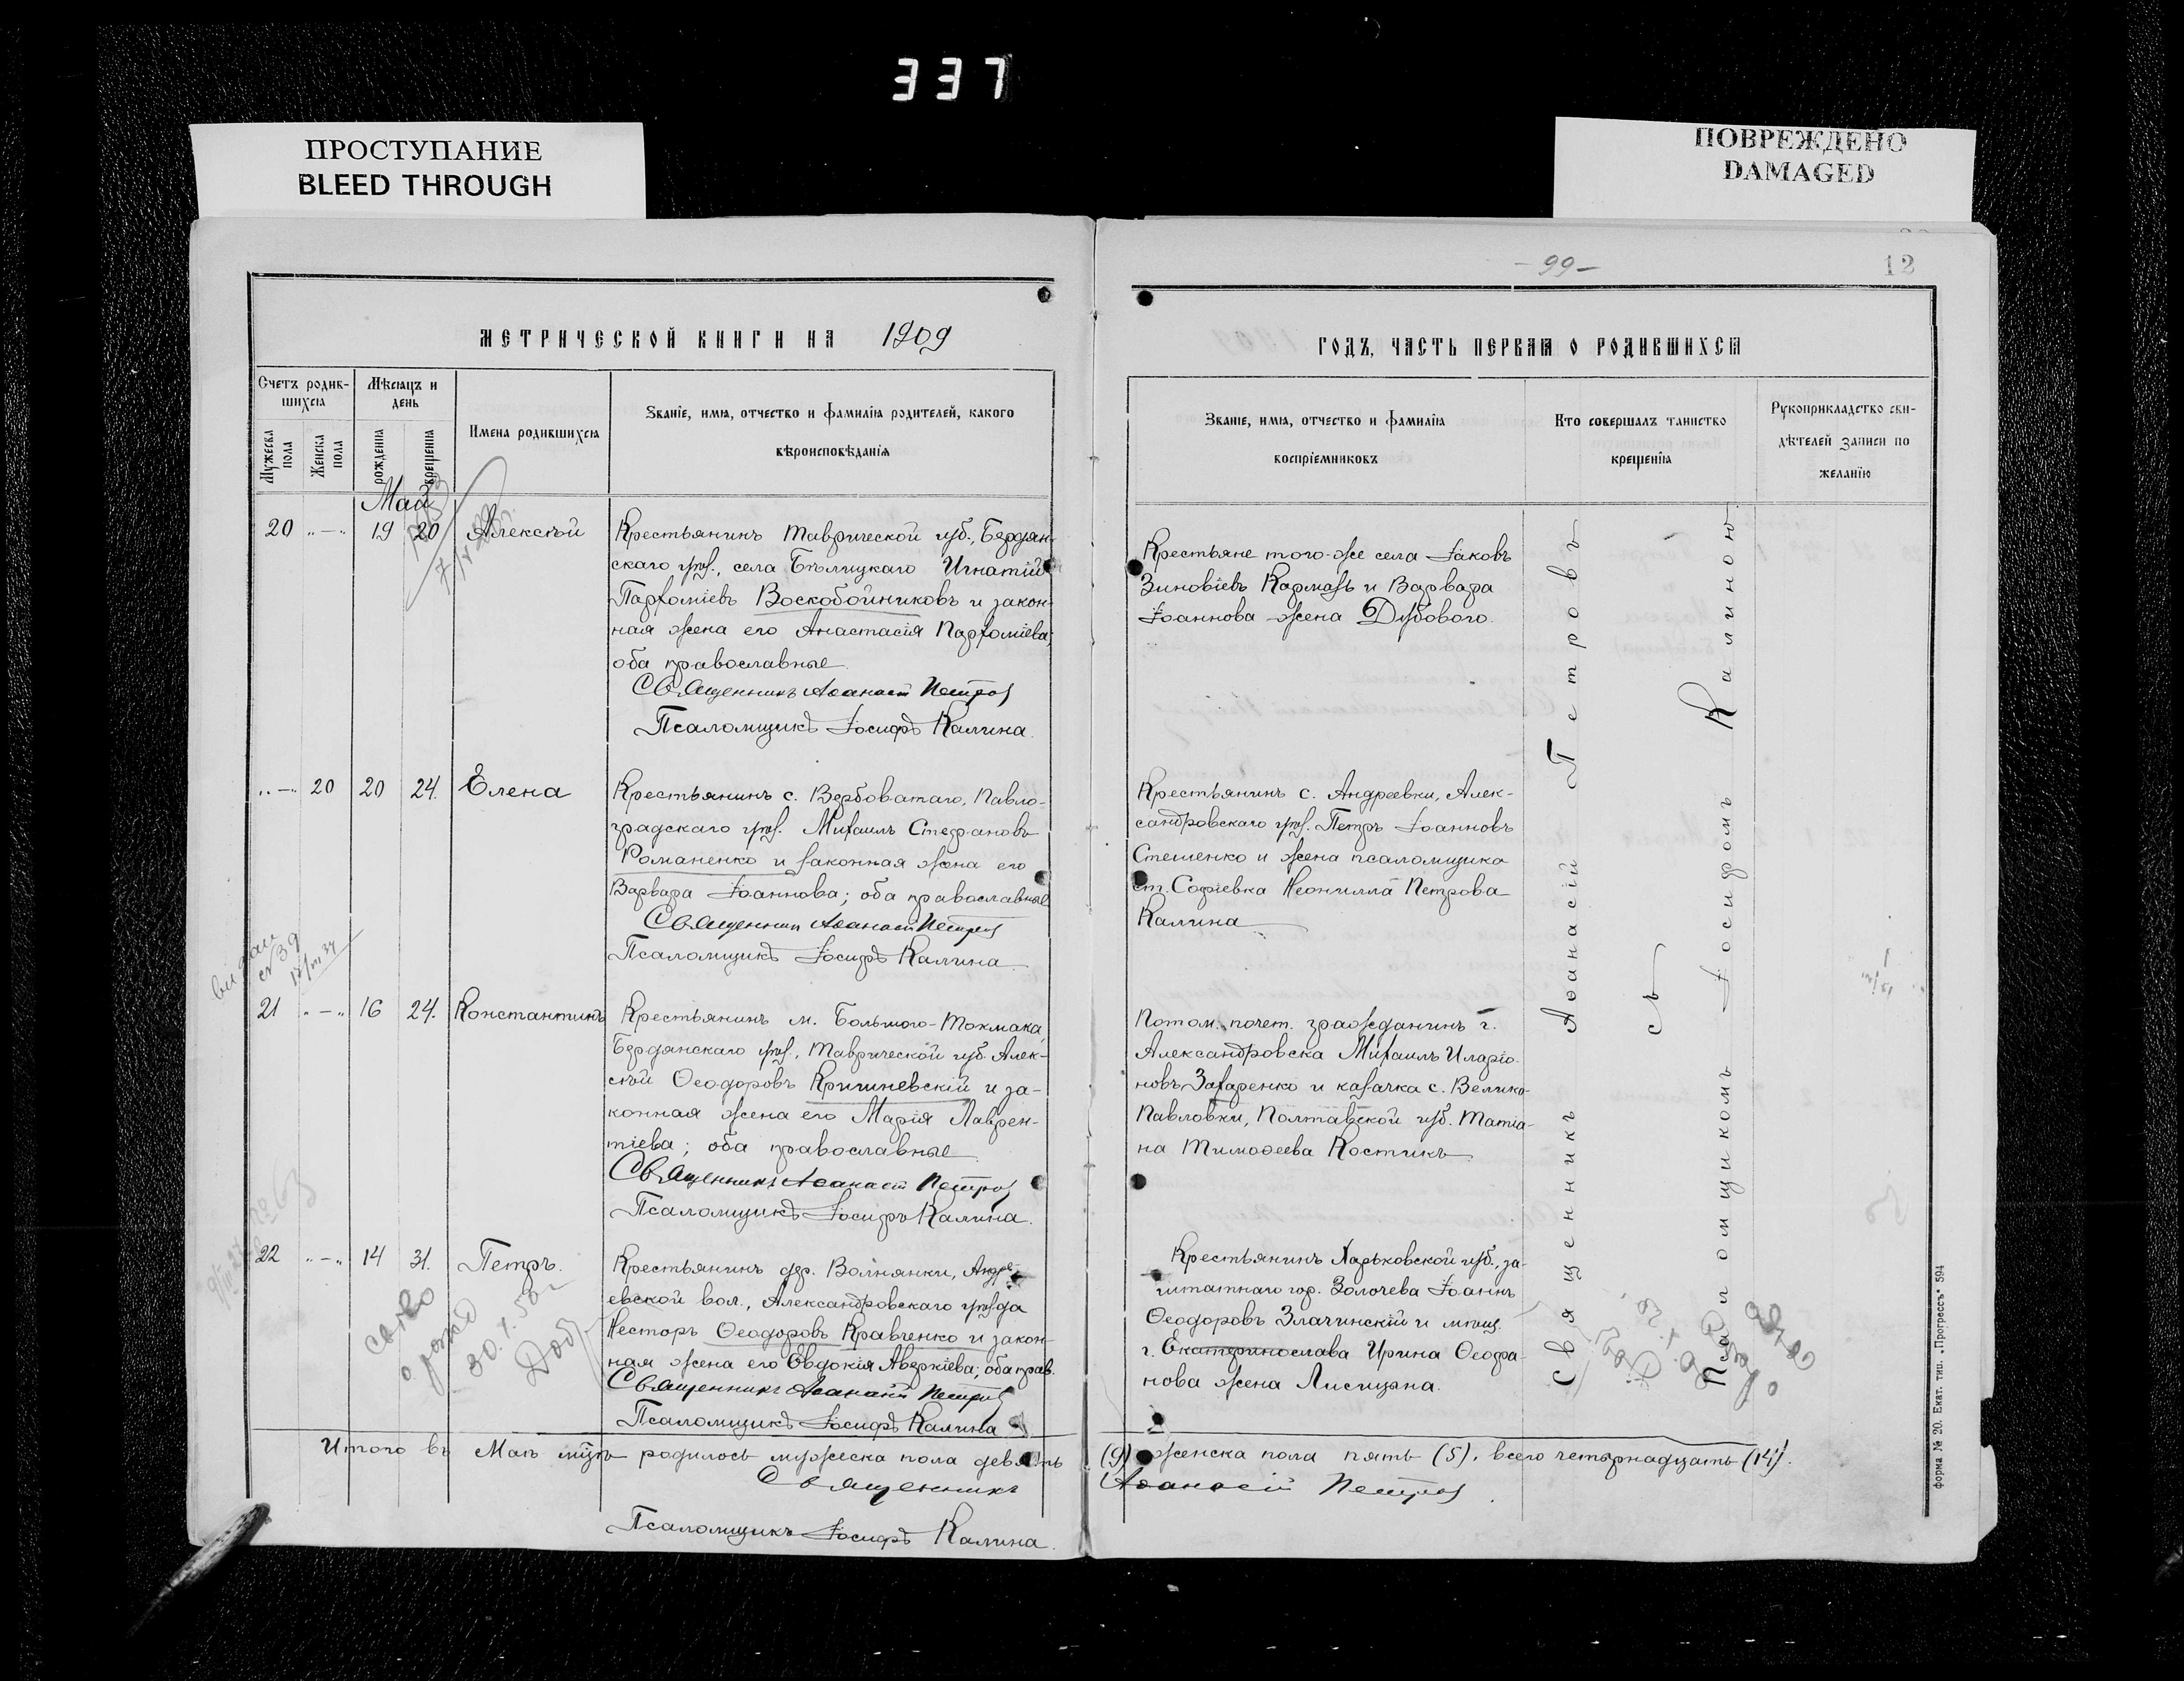 337
ПРОСТУПАНИЕ
BLEED THROUGH
ПОВРЕЖДЕНО
DAMAGED
МЕТРИЧЕСКОЙ КНИГИ НА 1909
Счетъ родив-
шихся
Мѣсяцъ и
день
Мужеска
пола
Женска
пола
рожденія
крещенія
Имена родившихся
Званіе, имя, отчество и фамилія родителей, какого
вѣроисповѣданія
Май
20 „—„ 19 20 Алексѣй
Крестьянинъ Таврической губ., Бердян-
скаго уѣз., села Бѣлицкаго Игнатій
Парѳоміевъ Воскобойниковъ и закон-
ная жена его Анастасія Парѳоміева;
оба православные
Священникъ Аѳанасій Петровъ
Псаломщикъ Іосифъ Калина.
„—„ 20 20 24. Елена
Крестьянинъ с. Вербоватаго, Павло-
градскаго уѣз. Михаилъ Стефановъ
Романенко и законная жена его
Варвара Іоаннова; оба православные
Священникъ Аѳанасій Петровъ
Псаломщикъ Іосифъ Калина
21 „—„ 16 24. Константинъ
Крестьянинъ м. Большого-Токмака,
Бердянскаго уѣз., Таврической губ. Алек-
сѣй Ѳеодоровъ Кришневскій и за-
конная жена его Марія Лаврен-
тіева; оба православные
Священникъ Аѳанасій Петровъ
Псаломщикъ Іосифъ Калина.
22 „—„ 14 31. Петръ.
Крестьянинъ дер. Волнянки, Андре-
евской вол., Александровскаго уѣзда
Несторъ Ѳеодоровъ Кравченко и закон-
ная жена его Евдокія Аверкіева; оба прав.
Священникъ Аѳанасій Петровъ
Псаломщикъ Іосифъ Калина
о рожд
30.1.50 г
Итого въ Маѣ мцѣ родилось мужеска пола девять
Священникъ
Псаломщикъ Іосифъ Калина.
– 99 –
12
ГОДЪ, ЧАСТЬ ПЕРВАЯ О РОДИВШИХСЯ
Званіе, имя, отчество и фамилія
воспріемниковъ
Кто совершалъ таинство
крещенія
Рукоприкладство сви-
дѣтелей записи по
желанію
Крестьяне того-же села Іаковъ
Зиновіевъ Кармазь и Варвара
Іоаннова жена Дубового.
Крестьянинъ с. Андреевки, Алек-
сандровскаго уѣз. Петръ Іоанновъ
Стешенко и жена псаломщика
ст. Софіевка Неонилла Петрова
Калина
Потом. почет. гражданинъ г.
Александровска Михаилъ Иларіо-
новъ Захаренко и казачка с. Велико-
Павловки, Полтавской губ. Татіа-
на Тимоѳеева Костикъ
Крестьянинъ Харьковской губ., за-
штатнаго гор. Золочева Іоаннъ
Ѳеодоровъ Злачинскій и мѣщ.
г. Екатеринослава Ирина Ѳеофа-
нова жена Лисицына.
Священникъ Аѳанасій Петровъ
съ
Псаломщикомъ Іосифомъ Калиною.
(9) женска пола пять (5), всего четырнадцать (14).
Аѳанасій Петровъ
Форма № 20. Екат. тип. „Прогрессъ“ 594